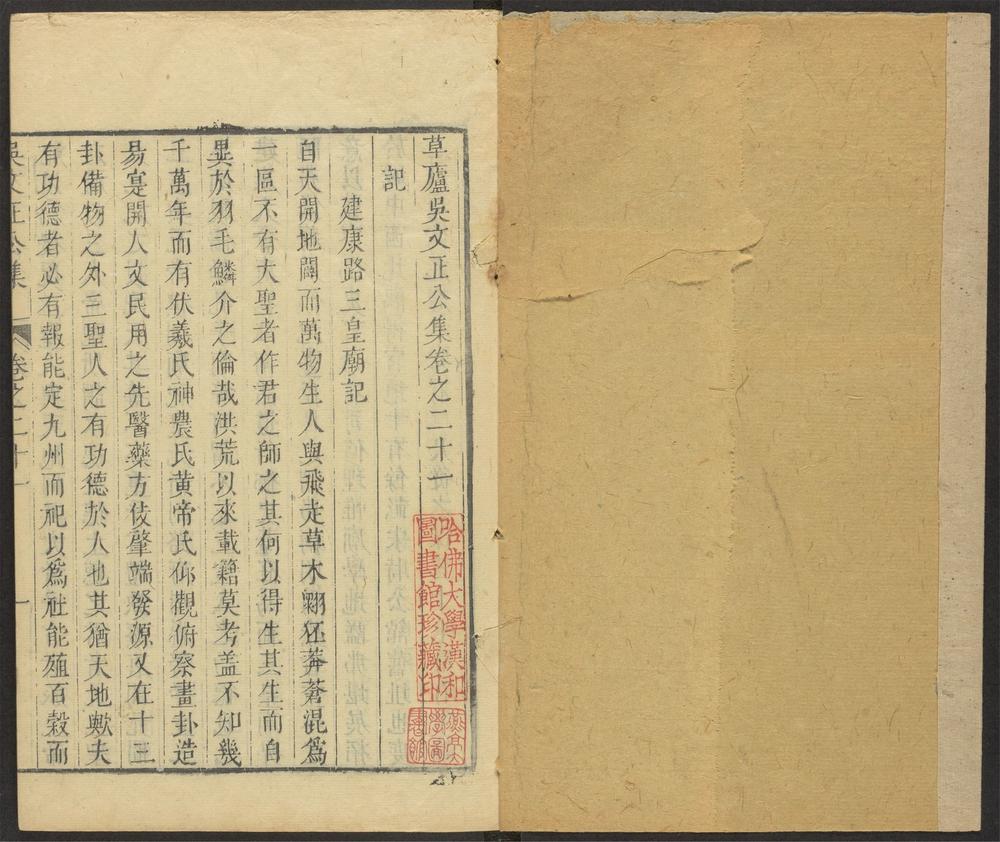 草廬吳文正公集卷之二十一
記
建康路三皇廟記
自天開地闢而萬物生人與飛走草木翺狉莽蒼混爲
一區不有大聖者作君之師之其何以得生其生而自
異於羽毛鱗介之倫哉洪荒以來載籍莫考盖不知幾
千萬年而有伏羲氏神農氏黄帝氏仰觀俯察畫卦造
昜寔開人文民用之先醫藥方伎肇端發源又在十三
卦備物之外三聖人之有功德於人也其猶天地歟夫
有功德者必有報能定九州而祀以爲社能殖百穀而
吳文正公集 卷之二十一 一
哈佛大學漢和
圖書館珍藏印
燕京大
學圖
書館